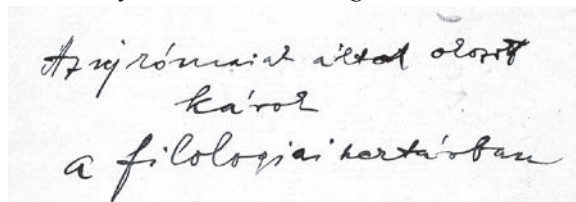 Az uj rómaiak által okozott
károk
a filologiai kertásban